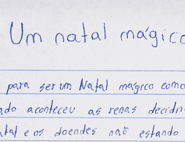 Um natal mágico
para ser um Natal magico como
ndo aconteceu as renas decidir
atal e os doendes nat estando